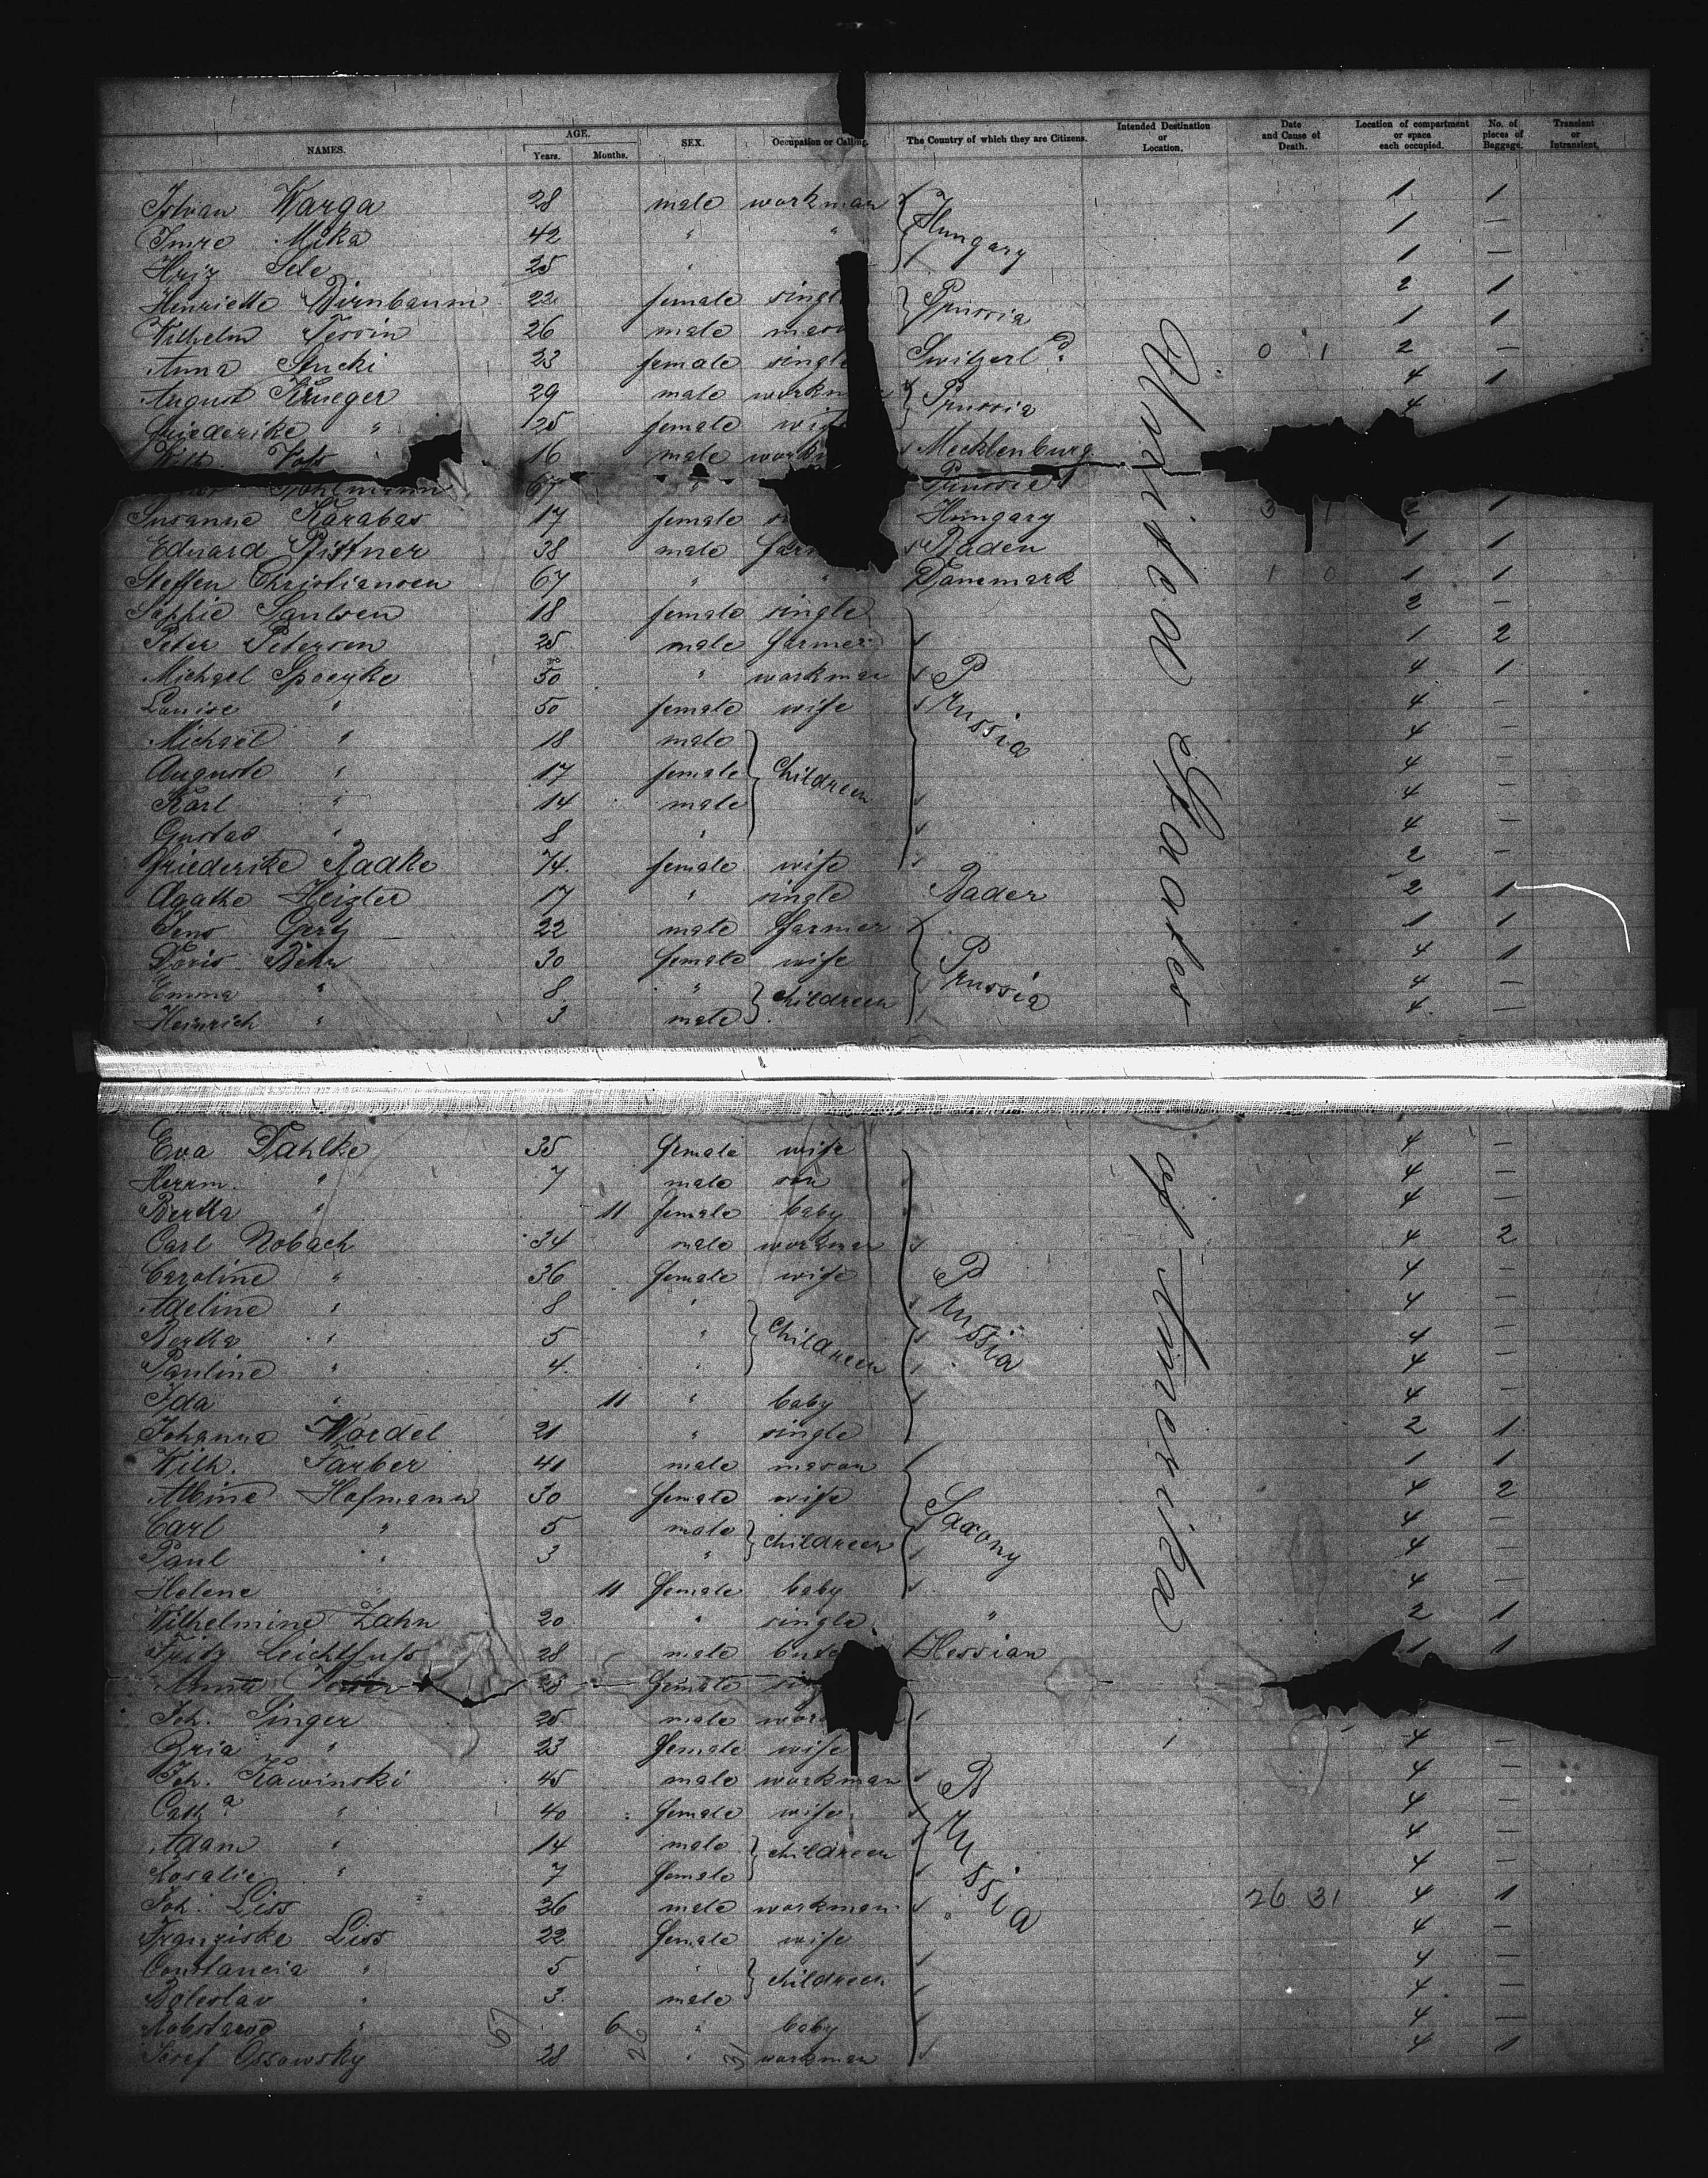 NAMES. AGE. Years. Months. SEX. Occupation or Calling. The Country of which they are Citizens. Intended Destination or Location. Date and Cause of Death. Location of compartment or space each occupied. No. of pieces of Baggage. Transient or Intransient.
Istvan Warga 28 male workman Hungary 1 1
Imre Mika 42 " " 1 —
25 " 1 —
Henriette Birnbaum 22 female single Prussia 2 1
Wilhelm Tessin 26 male mason 1 1
Anna Stucki 23 female single Switzerld. 0 1 2 —
August Krueger 29 male workman Prussia 4 1
Friederike " 25 female wife 4
Wilh. 16 male workm Mecklenburg
67 " Prussia
Susanne Karabas 17 female Hungary 3 1 2 1
Eduard 38 male farm Baden 1 1
Steffen Christiansen 67 " " Danemark 1 0 1 1
Sophie Paulsen 18 female single Prussia 2 —
Peter Petersen 25 male farmer 1 2
Michael 50 " workman 4 1
Louise " 50 female wife 4 —
Michael " 18 male children 4 —
Auguste " 17 female 4 —
Karl " 14 male 4 —
Gustav " 8 " 4 —
Friederike Radke 74 female wife 2 —
Agathe Heizler 17 " single Baden 2 1
Jens Gertz 22 male farmer Prussia 1 1
Doris Behn 30 female wife 4 1
Emma " 8 " children 4 —
Heinrich " 3 male 4 —
United States of Amerika
Eva Dahlke 35 female wife Prussia 4 —
Herrm. " 7 male son 4 —
Bertha " 11 female baby 4 —
Carl Nobach 34 male workman 4 2
Caroline " 36 female wife 4 —
Adeline " 8 " children 4 —
Bertha " 5 " 4 —
Pauline " 4 " 4 —
Ida " 11 " baby 4 —
Johanna Wordel 21 " single 2 1
Wilh. Farber 41 male mason Saxony 1 1
Albine Hofmann 30 female wife 4 2
Carl " 5 male children 4 —
Paul " 3 " 4 —
Helene " 11 female baby 4 —
Wilhelmine Zahn 20 " single " 2 1
Fritz Leichtfuss 28 male Hessian 1 1
28 female
Joh. Singer 25 male wor Prussia
" 23 female wife 1 4 —
Joh. Kawinski 45 male workman 4 —
Catha. " 40 female wife 4 —
Adam " 14 male children 4 —
Rosalie " 7 female 4 —
Joh. Liss 26 male workman 26 31 4 1
Franziske Liss 22 female wife 4 —
Constancia " 5 " children 4 —
Boleslav " 3 male 4 —
" 6 " baby 4 —
Josef Ossowsky 28 " workman 4 1
67 26 31